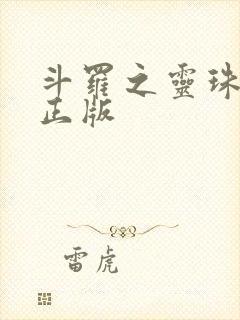 斗羅之靈珠
正版
雷虎